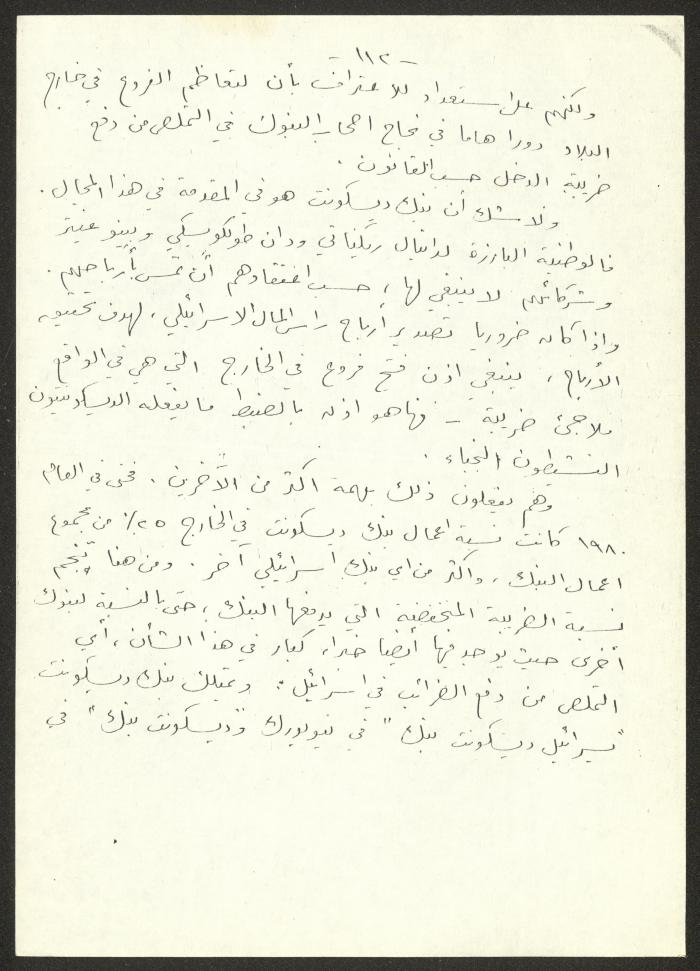 -١١٢
ولكنهم على استعداد للاعتراف بأن لتعاظم الفروع في خارج
البلاد دورا هاما في نجاح اصحاب البنوك في التملص من دفع
ضريبة الدخل حسب القانون .
ولا شك أن بنك ديسكونت هو في المقدمة في هذا المجال .
فالوطنية البارزة لدانيال ريكناتي ودان طولكوبسكي وبينو غيتر
وشركائهم لا ينبغي لها ، حسب اعتقادهم أن تمس بأرباحهم .
واذا كان ضروريا تصدير أرباح راس المال الاسرائيلي ، لهدف تحقيق
الأرباح ، ينبغي اذن فتح فروع في الخارج التي هي في الواقع
ملاجئ ضريبة - فها هو اذن بالضبط ما يفعله الديسكونتيون
النشيطون النجباء .
وهم يفعلون ذلك بهمة اكثر من الآخرين . فحتى في العام
١٩٨٠ كانت نسبة اعمال بنك ديسكونت في الخارج ٢٥٪ من مجموع
اعمال البنك ، واكثر من اي بنك اسرائيلي آخر . ومن هنا تنجم
نسبة الضريبة المنخفضة التي يدفعها البنك ، حتى بالنسبة لبنوك
أخرى حيث يوجد فيها أيضا خبراء كبار في هذا الشأن ، أي
التملص من دفع الضرائب في اسرائيل : ويمتلك بنك ديسكونت
"يسرائيل ديسكونت بنك" في نيويورك و"ديسكونت بنك" في